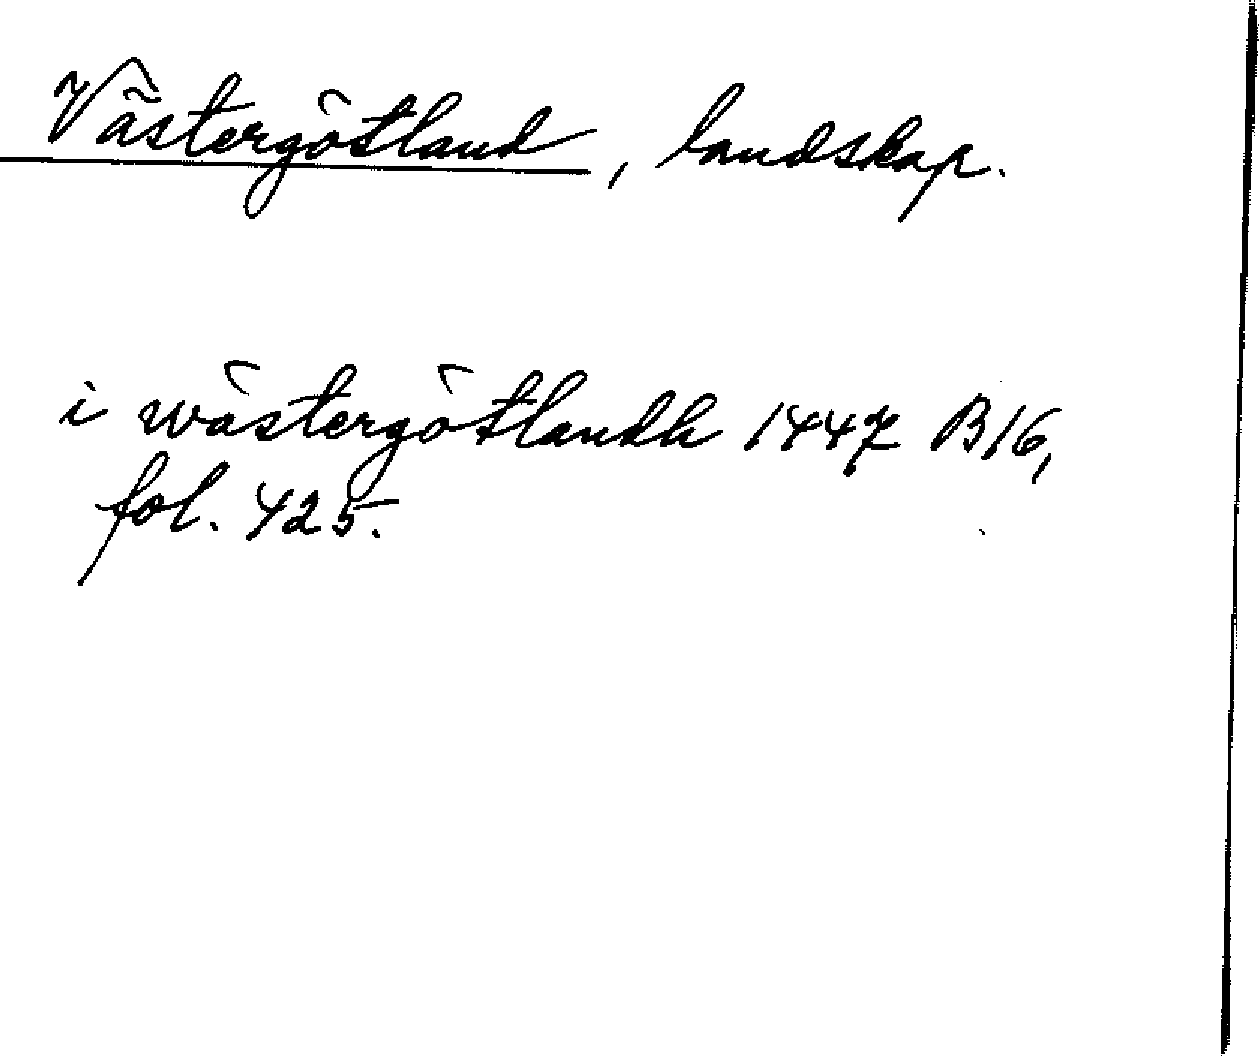 Västergötland, landskap.
i wästergötlandh 1447 B16,
fol. 425.